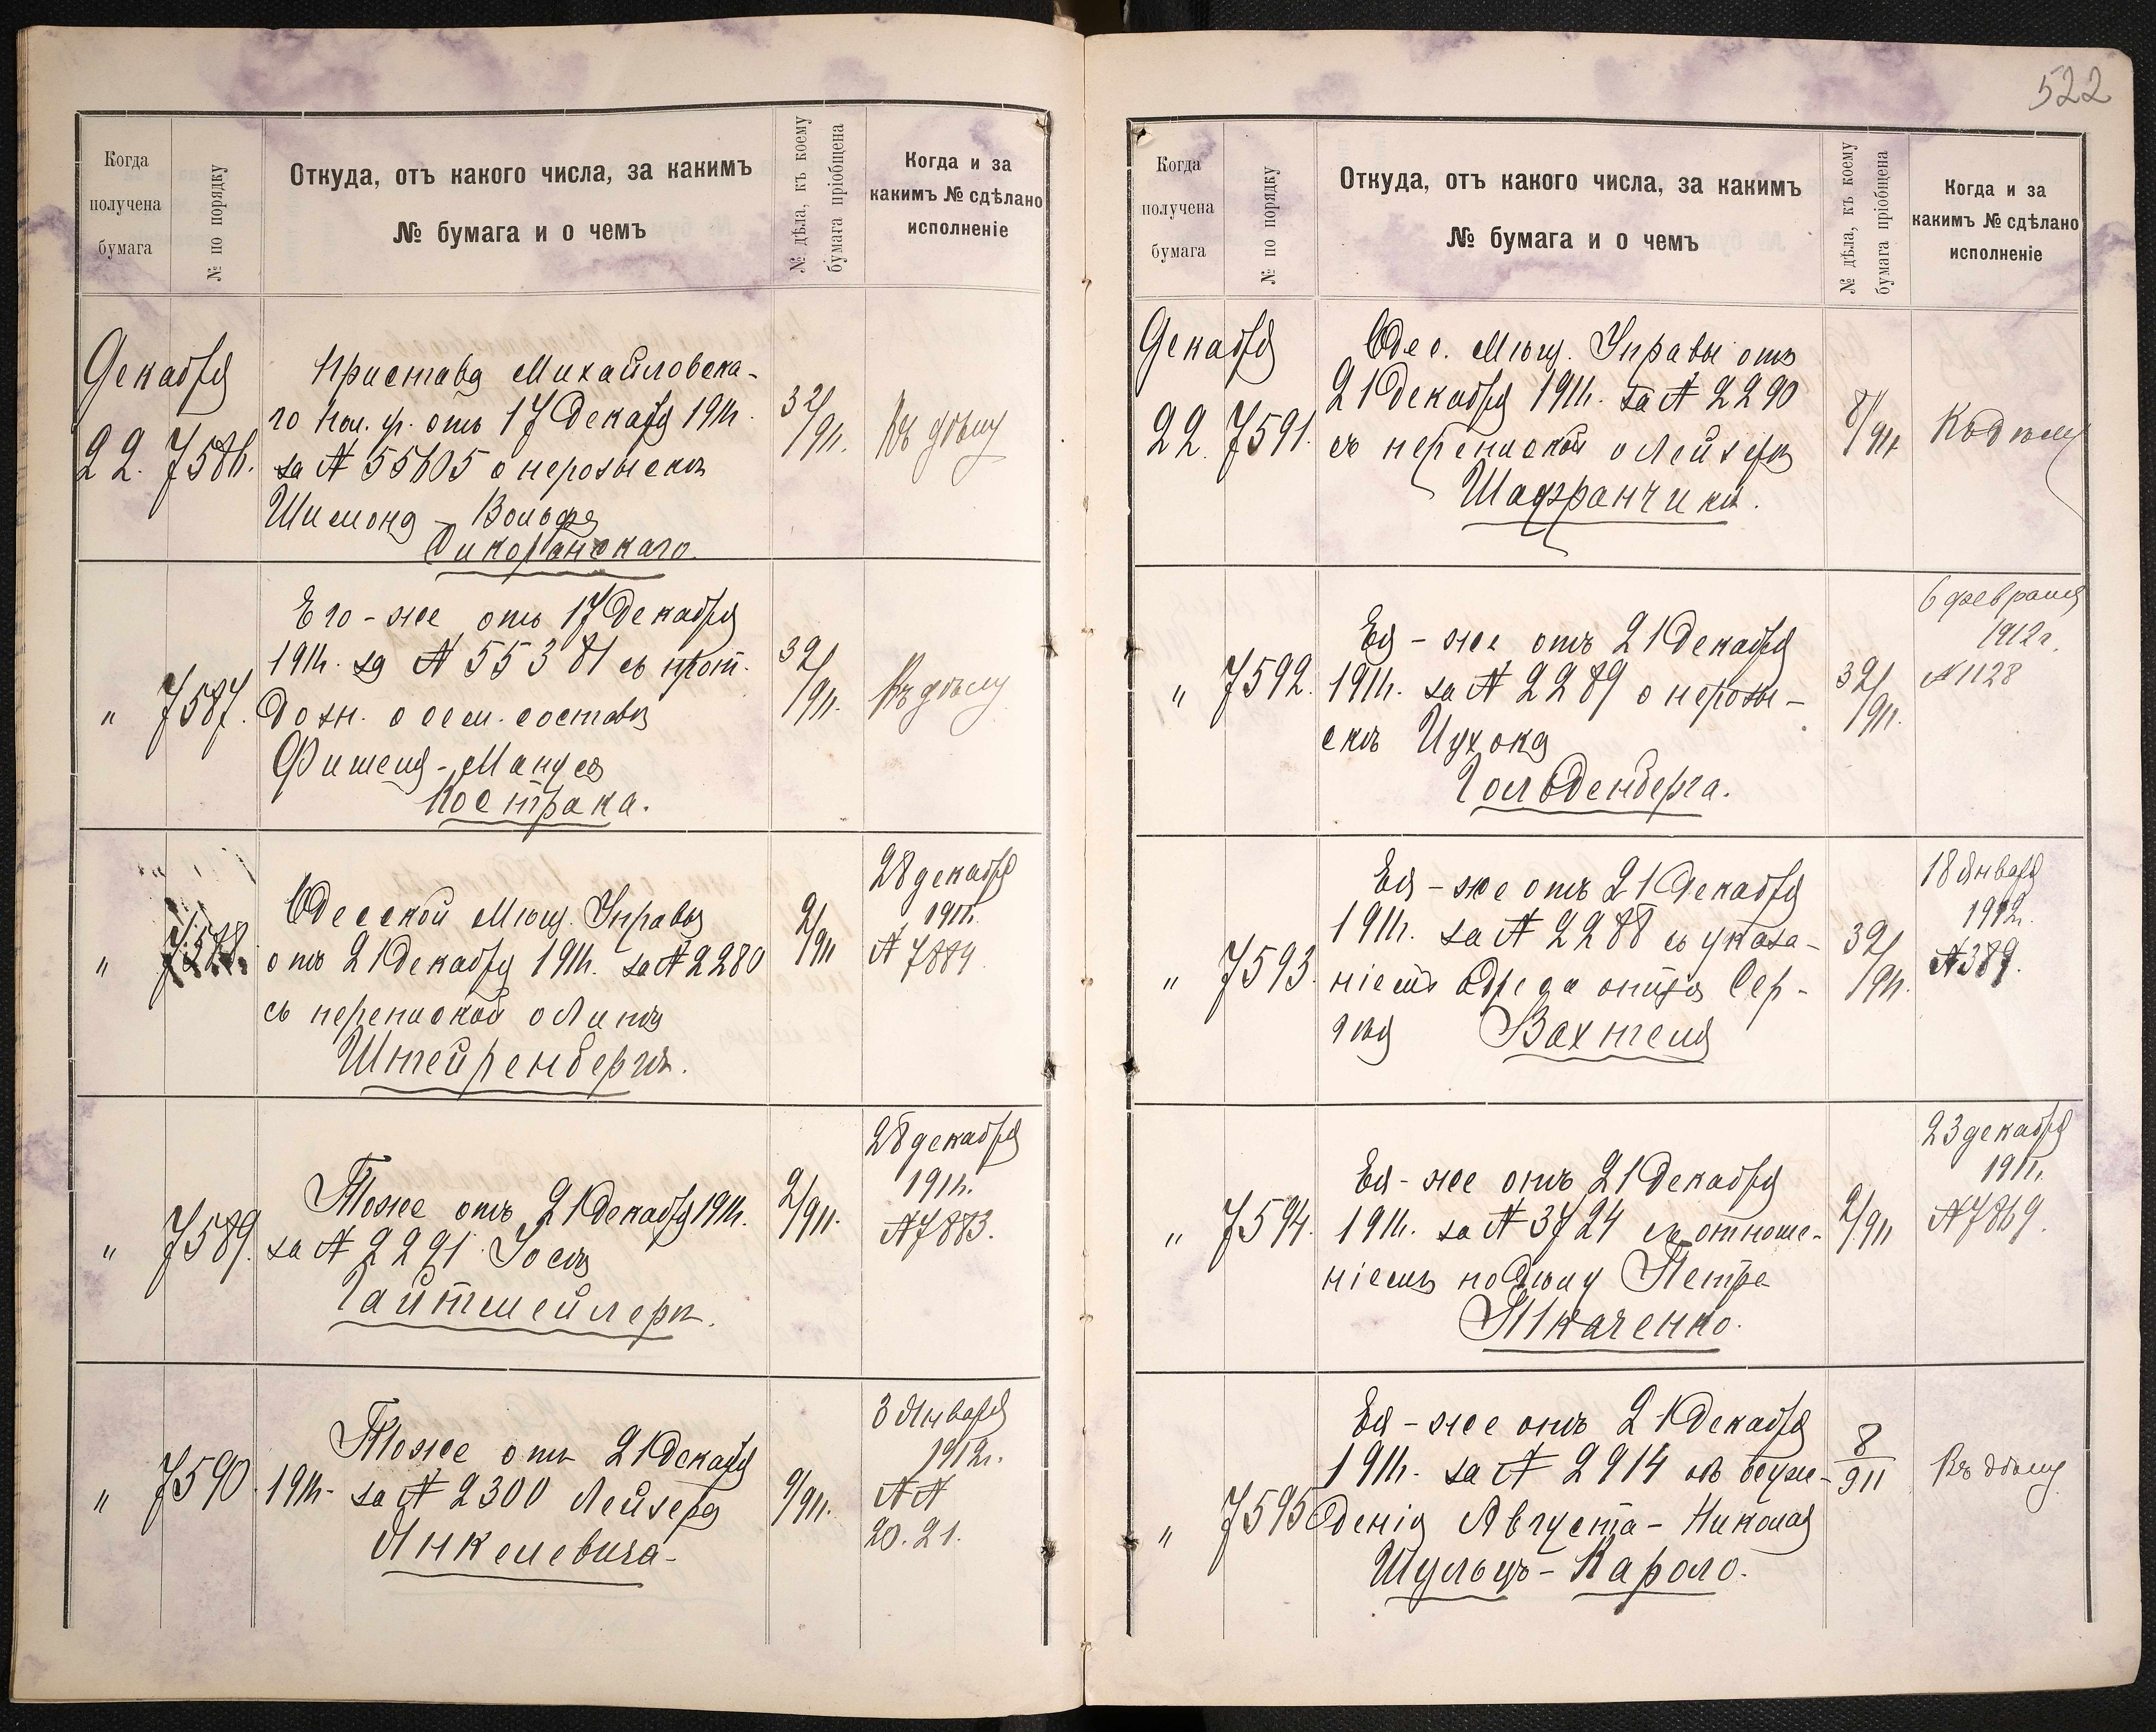 522
Когда
получена
бумага
№ по порядку
Откуда, отъ какого числа, за какимъ
№ бумага и о чемъ
№ дѣла, къ коему
бумага пріобщена
Когда и за
какимъ № сдѣлано
исполненіе
Декабря
22. 7586.
Пристава Михайловска-
го пол. уч. отъ 17 Декабря 1911г.
за № 55605 о нерозыскѣ
Шимона-Вольфа
32/911.
Къ дѣлу
" 7587.
Его-же отъ 17 Декабря
1911г. за № 55381 съ прот.
дозн. о сем. составѣ
Фишеля-Мануса
Кострака.
32/911.
Къ дѣлу
" 7588.
Одесской Мѣщ. Управы
отъ 21 Декабря 1911г. за № 2280
съ перепиской о Липѣ
Штейренбергѣ.
2/911
28 декабря
1911г.
№ 7884
" 7589.
Тоже отъ 21 Декабря 1911г.
за № 2291 Іоси
Гайтмейлеръ.
2/911.
28 декабря
1911г.
№ 7883.
" 7590.
Тоже отъ 21 Декабря
1911г. за № 2300 Лейзера
Янкелевича.
9/911.
3 Января
1912г.
№№
20. 21.
Когда
получена
бумага
№ по порядку
Откуда, отъ какого числа, за какимъ
№ бумага и о чемъ
№ дѣла, къ коему
бумага пріобщена
Когда и за
какимъ № сдѣлано
исполненіе
Декабря
22. 7591.
Одес. Мѣщ. Управы отъ
21 Декабря 1911г. за № 2290
съ перепиской о Лейзерѣ
Шафранчикѣ.
8/911
Къ дѣлу
" 7592.
Ея-же отъ 21 Декабря
1911г. за № 2289 о нерозы-
скѣ Ицхока
Гольденберга.
32/911.
6 февраля
1912г.
№ 1128
" 7593.
Ея-же отъ 21 Декабря
1911г. за № 2288 съ указа-
ніемъ адреса отца Сер-
гѣя Вахтеля
32/911.
18 Января
1912г.
№ 389.
" 7594.
Ея-же отъ 21 Декабря
1911г. за № 3724 съ отноше-
ніемъ по дѣлу Петра
Ткаченко.
2/911
23 декабря
1911г.
№ 7869.
" 7595
Ея-же отъ 21 Декабря
1911г. за № 2914 объ осуж-
деніи Августа-Николая
Шульцъ-Кароло.
8/911
Къ дѣлу